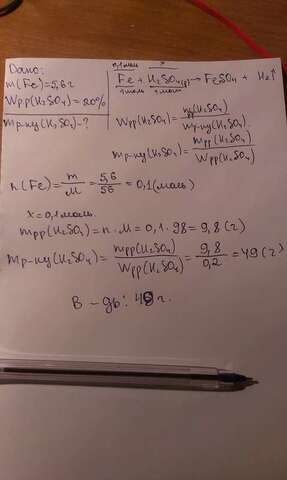 Дано:
m(Fe)=5,6 г
Wрр(H2SO4)=20%
mр-ну(H2SO4)-?
0,1 моль x
Fe + H2SO4(р) → FeSO4 + H2↑
1 моль 1 моль
Wрр(H2SO4) = mрр(H2SO4) / mр-ну(H2SO4)
mр-ну(H2SO4) = mрр(H2SO4) / Wрр(H2SO4)
n(Fe) = m/M = 5,6/56 = 0,1(моль)
x = 0,1 моль.
mрр(H2SO4) = n · M = 0,1 · 98 = 9,8 (г)
mр-ну(H2SO4) = mрр(H2SO4) / Wрр(H2SO4) = 9,8/0,2 = 49 (г)
В - дь: 49 г.